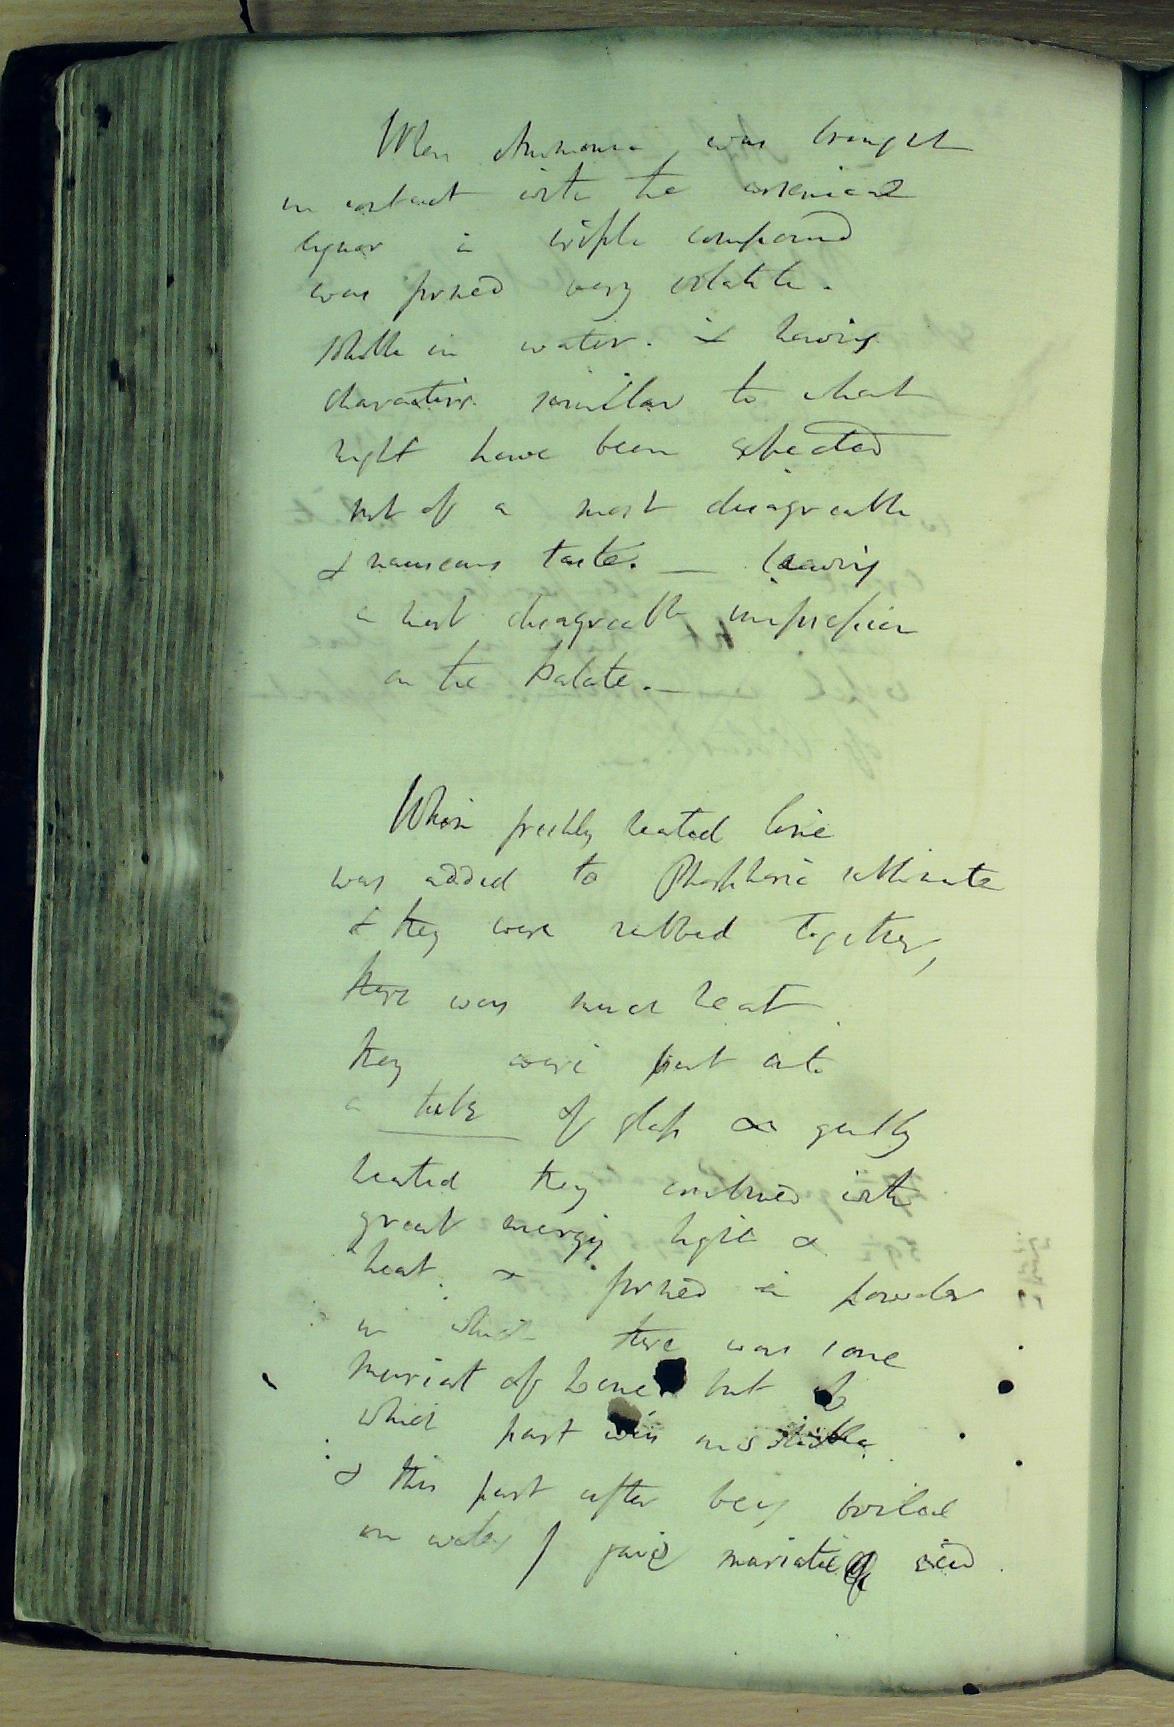 When Ammonia was brought
in contact with the arsenical
liquor a triple compound
was formed very volatile.
soluble in water. & having
characters similar to what
might have been expected
but of a most disagreeable
& nauseous taste. — leaving
a most disagreeable impression
on the Palate. —
When freshly heated lime
was added to Phosphoric sublimate
& they were rubbed together,
there was much heat
they were put into
a tube of glass & gently
heated they combined with
great energy light &
heat. & formed a powder
in which there was some
muriat of Lime but of
which part was insoluble
& this part after being boiled
in water / gave muriatic acid.